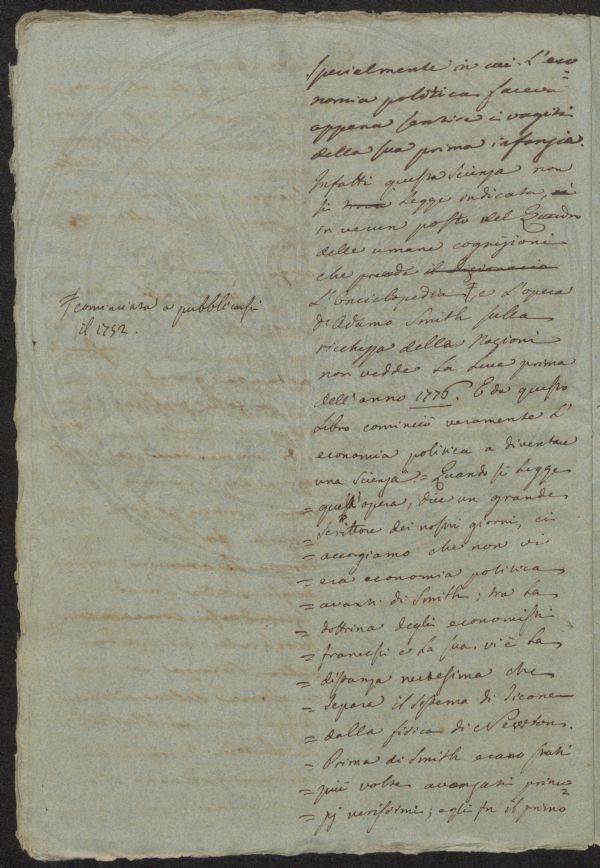 Specialmente in cui l'eco=
nomia politica faceva
appena sentire i vagiti
della sua prima infanzia.
Infatti questa scienza non
si legge indicata
in verun posto del Quadro
delle umane cognizioni
che precede il dizionario
L'Enciclopedia ‡, e l'opera
di Adamo Smith sulla
ricchezza della Nazioni
non vedde la luce prima
dell'anno 1776. E da questo
Libro cominciò veramente l'
economia politica a diventare
una scienza = Quando si legge
= quest'opera, dice un grande
= scrittore dei nostri giorni, ci
= accorgiamo che non vi
= era economia politica
= avanti di Smith; tra la
= dottrina degli economisti
= francesi e la sua, vi è la
= distanza medesima che
= separa il sistema di Ticone
= dalla fisica di Newton.
= Prima di Smith erano stati
= più volte avanzati princi=
= pj verissimi; egli fu il primo
‡ cominciata a pubblicarsi
il 1752.